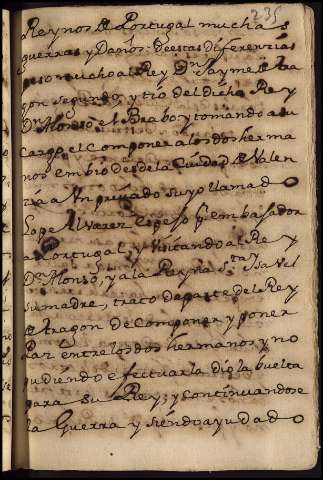 235
Reynos de Portugal muchas
guerras y Daños: deestas diferencias
peso mucho al Rey Dn Jayme de Ara
gon segundo, y tio del dicho Rey
Dn Alonso, el Brabo y tomando a su
cargo el Componer alos dos herma
nos embio desde la Ciudad de Valen
zia a Un privado suyo llamado
Lope Alvarez Espejo pr embaxador
a Portugal, y visitando al Rey
Dn Alonso, y a la Reyna Sta Ysavel
su madre, trato de parte del Rey
de Aragon de Componer y poner
Paz entre los dos hermanos y no
pudiendo efectuarla dio la buelta
para su Rey; y continuandose
la Guerra y siendo ayudado